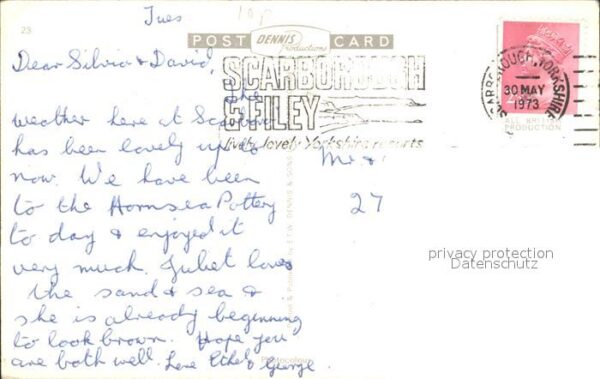 Tues
10p
23
POST DENNIS Productions CARD
Dear Silvia & David,
SCARBOROUGH
& FILEY
lively, lovely Yorkshire resorts
SCARBOROUGH, YORKSHIRE
30 MAY
1973
ALL BRITISH
PRODUCTION
The
weather here at Scarboro'
has been lovely up to
now. We have been
to the Hornsea Pottery
to day & enjoyed it
very much. Juliet loves
the sand & sea &
she is already beginning
to look brown. Hope you
are both well. Love Ethel & George.
Mr &
27
privacy protection
Datenschutz
Photocolour